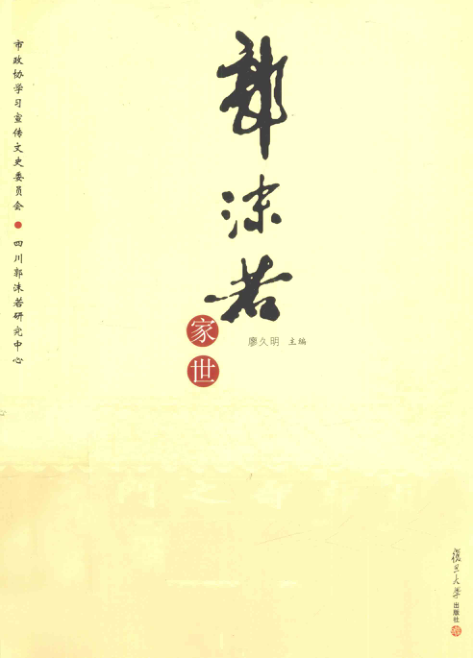 市政协学习宣传文史委员会●四川郭沫若研究中心
郭沫若
家世
廖久明 主编
復旦大學
出版社